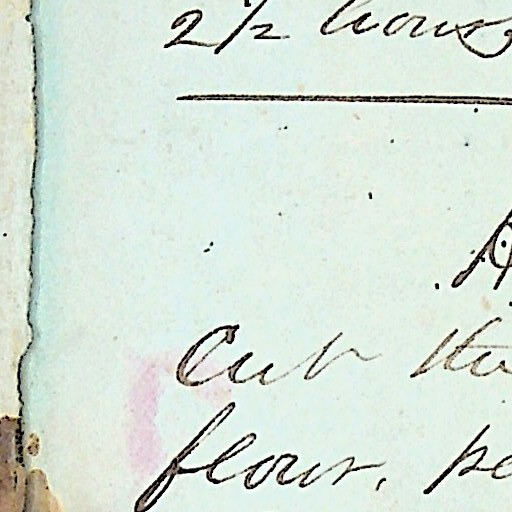 2 1/2 hours
Cut the
flour, pe